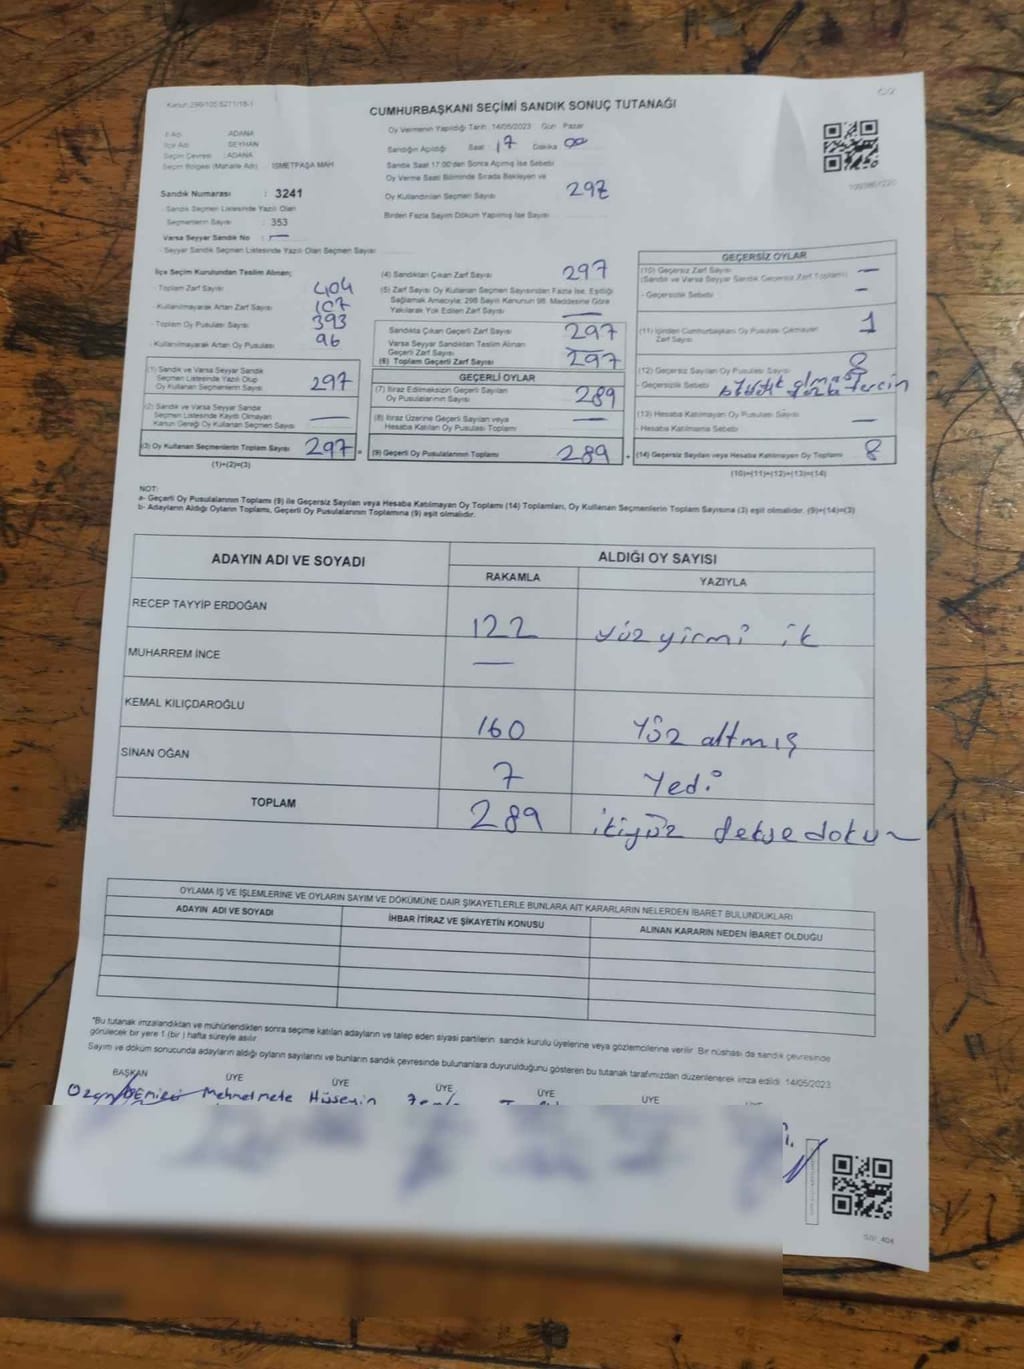 CUMHURBAŞKANI SEÇİMİ SANDIK SONUÇ TUTANAĞI
İl Adı : ADANA
İlçe Adı : SEYHAN
Seçim Çevresi : ADANA
Seçim Bölgesi (Mahalle Adı) : İSMETPAŞA MAH
Sandık Numarası : 3241
- Sandık Seçmen Listesinde Yazılı Olan
Seçmenlerin Sayısı : 353
Varsa Seyyar Sandık No : —
- Seyyar Sandık Seçmen Listesinde Yazılı Olan Seçmen Sayısı
Oy Vermenin Yapıldığı Tarih: 14/05/2023 Gün: Pazar
Sandığın Açıldığı Saat 17 Dakika 00
Sandık Saat 17:00'dan Sonra Açılmış İse Sebebi
Oy Verme Saati Bitiminde Sırada Bekleyen ve
Oy Kullandırılan Seçmen Sayısı 297
Birden Fazla Sayım Döküm Yapılmış İse Sayısı
İlçe Seçim Kurulundan Teslim Alınan;
- Toplam Zarf Sayısı 404
- Kullanılmayarak Artan Zarf Sayısı 107
- Toplam Oy Pusulası Sayısı 393
- Kullanılmayarak Artan Oy Pusulası 96
(1) Sandık ve Varsa Seyyar Sandık
Seçmen Listesinde Yazılı Olup
Oy Kullanan Seçmenlerin Sayısı 297
(2) Sandık ve Varsa Seyyar Sandık
Seçmen Listesinde Kayıtlı Olmayan
Kanun Gereği Oy Kullanan Seçmen Sayısı —
(3) Oy Kullanan Seçmenlerin Toplam Sayısı 297 =
(1)+(2)=(3)
(4) Sandıktan Çıkan Zarf Sayısı 297
(5) Zarf Sayısı Oy Kullanan Seçmen Sayısından Fazla İse, Eşitliği
Sağlamak Amacıyla; 298 Sayılı Kanunun 98. Maddesine Göre
Yakılarak Yok Edilen Zarf Sayısı —
Sandıkta Çıkan Geçerli Zarf Sayısı 297
Varsa Seyyar Sandıktan Teslim Alınan
Geçerli Zarf Sayısı
(6) Toplam Geçerli Zarf Sayısı 297
GEÇERLİ OYLAR
(7) İtiraz Edilmeksizin Geçerli Sayılan
Oy Pusulalarının Sayısı 289
(8) İtiraz Üzerine Geçerli Sayılan veya
Hesaba Katılan Oy Pusulası Toplamı —
(9) Geçerli Oy Pusulalarının Toplamı 289 +
GEÇERSİZ OYLAR
(10) Geçersiz Zarf Sayısı —
(Sandık ve Varsa Seyyar Sandık Geçersiz Zarf Toplamı)
- Geçersizlik Sebebi —
(11) İçinden Cumhurbaşkanı Oy Pusulası Çıkmayan
Zarf Sayısı 1
(12) Geçersiz Sayılan Oy Pusulası Sayısı
- Geçersizlik Sebebi
(13) Hesaba Katılmayan Oy Pusulası Sayısı —
- Hesaba Katılmama Sebebi
(14) Geçersiz Sayılan veya Hesaba Katılmayan Oy Toplamı 8
(10)+(11)+(12)+(13)=(14)
NOT:
a- Geçerli Oy Pusulalarının Toplamı (9) ile Geçersiz Sayılan veya Hesaba Katılmayan Oy Toplamı (14) Toplamları, Oy Kullanan Seçmenlerin Toplam Sayısına (3) eşit olmalıdır. (9)+(14)=(3)
b- Adayların Aldığı Oyların Toplamı, Geçerli Oy Pusulalarının Toplamına (9) eşit olmalıdır.
ADAYIN ADI VE SOYADI
ALDIĞI OY SAYISI
RAKAMLA YAZIYLA
RECEP TAYYİP ERDOĞAN 122 yüz yirmi ik
MUHARREM İNCE —
KEMAL KILIÇDAROĞLU 160 Yüz altmış
SİNAN OĞAN 7 Yedi
TOPLAM 289 ikiyüz sekse dokuz
OYLAMA İŞ VE İŞLEMLERİNE VE OYLARIN SAYIM VE DÖKÜMÜNE DAİR ŞİKAYETLERLE BUNLARA AİT KARARLARIN NELERDEN İBARET BULUNDUKLARI
ADAYIN ADI VE SOYADI İHBAR İTİRAZ VE ŞİKAYETİN KONUSU ALINAN KARARIN NEDEN İBARET OLDUĞU
*Bu tutanak imzalandıktan ve mühürlendikten sonra seçime katılan adayların ve talep eden siyasi partilerin sandık kurulu üyelerine veya gözlemcilerine verilir. Bir nüshası da sandık çevresinde
görülecek bir yere 1 (bir) hafta süreyle asılır
Sayım ve döküm sonucunda adayların aldığı oyların sayılarını ve bunların sandık çevresinde bulunanlara duyurulduğunu gösteren bu tutanak tarafımızdan düzenlenerek imza edildi. 14/05/2023
BAŞKAN ÜYE ÜYE ÜYE ÜYE ÜYE
Mehmet Hüseyin